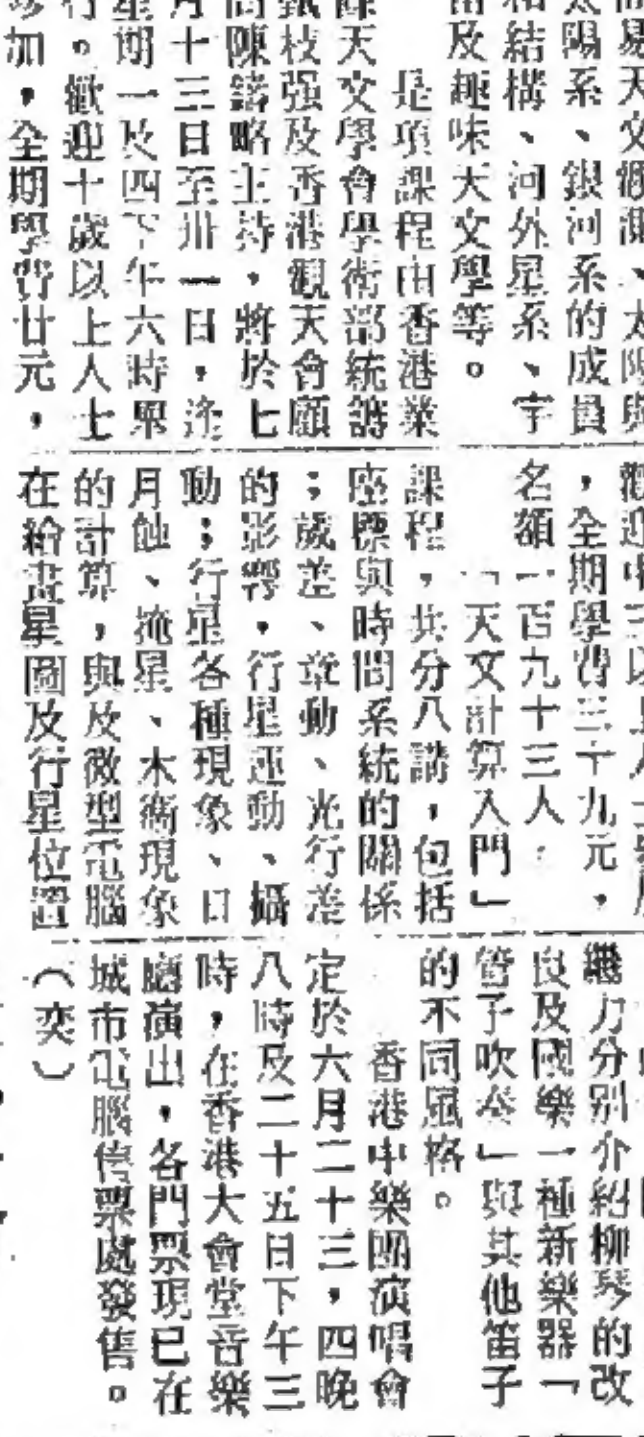 易天文觀測、太陽與
太陽系、銀河系的成員
和結構、河外星系、宇
宙及趣味天文學等。
是項課程由香港業
餘天文學會學術部統籌
甄枝强及香港觀天會顧
問陳鑄略主持，將於七
月十三日至卅一日，逢
星期一及四下午六時舉
行。歡迎十歲以上人士
參加，全期學費廿元，
歡迎中三以上人士
，全期學費三十九元，
名額一百九十三人．
「天文計算入門」
課程，共分八講，包括
座標與時間系統的關係
；歲差、章動、光行差
的影響，行星運動、攝
動；行星各種現象、日
月蝕、掩星、木衞現象
的計算，與及微型電腦
在繪畫星圖及行星位置
繼力分別介紹柳琴的改
良及國樂一種新樂器「
管子吹奏」與其他笛子
的不同風格。
香港中樂團演唱會
定於六月二十三，四晚
八時及二十五日下午三
時，在香港大會堂音樂
廳演出，各門票現已在
城市電腦售票處發售。
（奕）